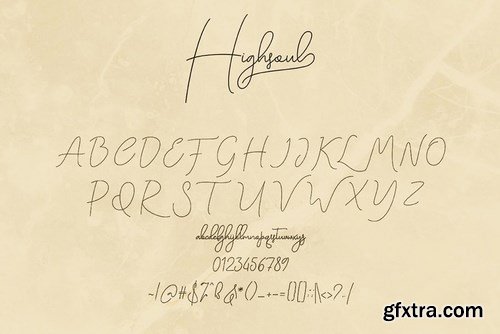 Highsoul
ABCDEFGHIJKLMNO
PQRSTUVWXYZ
abcdefghijklmnopqrstuvwxyz
0123456789
~!@#$%^&*()_+-={}[]:;|\<>?,./
gfxtra.com